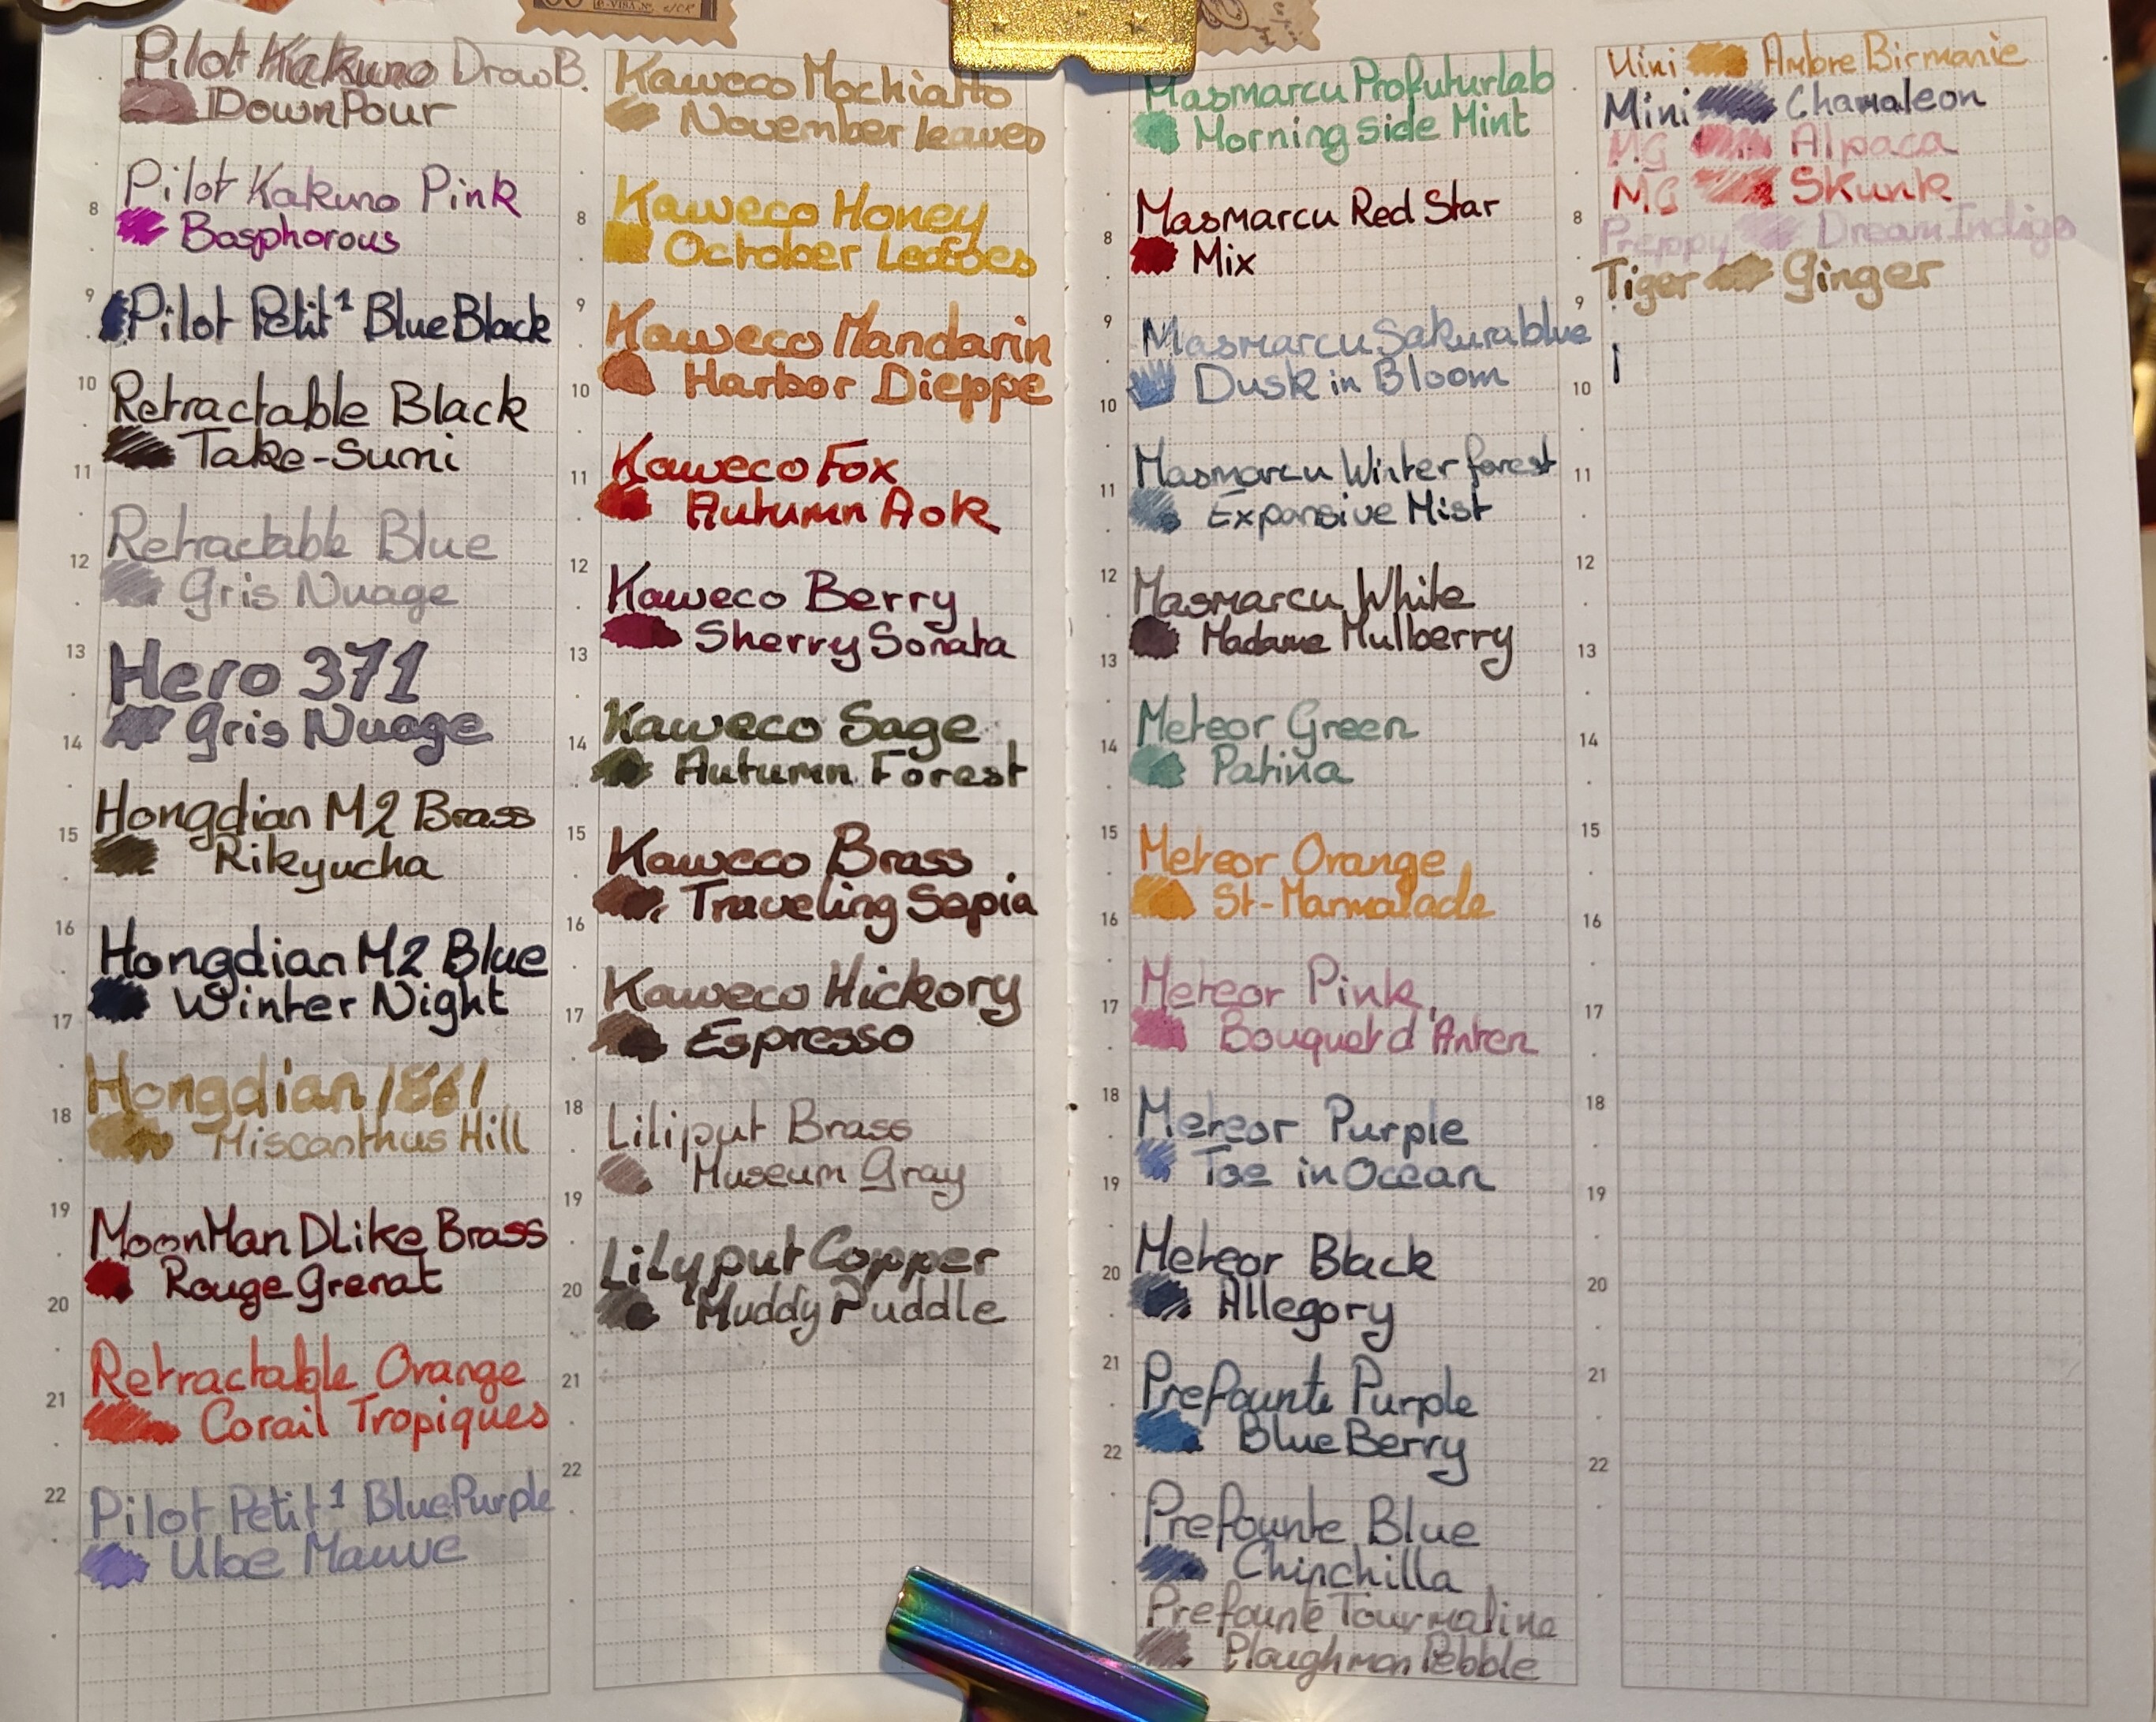 Pilot Kakuno Draw B.
DownPour
Pilot Kakuno Pink
Bosphorous
Pilot Petit1 Blue Black
Retractable Black
Take-Sumi
Retractable Blue
Gris Nuage
Hero 371
Gris Nuage
Hongdian M2 Brass
Rikyucha
Hongdian M2 Blue
Winter Night
Hongdian 1861
Miscanthus Hill
MoonMan DLike Brass
Rouge Grenat
Retractable Orange
Corail Tropiques
Pilot Petit1 BluePurple
Ube Mauve
8
9
10
11
12
13
14
15
16
17
18
19
20
21
22
Kaweco Mochiatto
November leaves
Kaweco Honey
October
Kaweco Mandarin
Harbor Dieppe
Kaweco Fox
Autumn Aok
Kaweco Berry
Sherry Sonata
Kaweco Sage
Autumn Forest
Kaweco Brass
Traveling Sepia
Kaweco Hickory
Espresso
Liliput Brass
Museum Gray
Lilyput Copper
Muddy Puddle
8
9
10
11
12
13
14
15
16
17
18
19
20
21
22
Masmarcu Profuturlab
Morning side Mint
Masmarcu Red Star
Mix
Masmarcu Sakurablue
Dusk in Bloom
Masmarcu Winter forest
Expansive Mist
Masmarcu White
Madame Mulberry
Meteor Green
Patina
Meteor Orange
St-Marmalade
Meteor Pink
Bouquet d'Anten
Meteor Purple
Toe in Ocean
Meteor Black
Allegory
Prefounte Purple
Blue Berry
Prefounte Blue
Chinchilla
Prefounte Tourmaline
Ploughman Pebble
8
9
10
11
12
13
14
15
16
17
18
19
20
21
22
Mini Ambre Birmanie
Mini Chamaleon
MG Alpaca
MG Skunk
Preppy Dream Indigo
Tiger Ginger
8
9
10
11
12
13
14
15
16
17
18
19
20
21
22